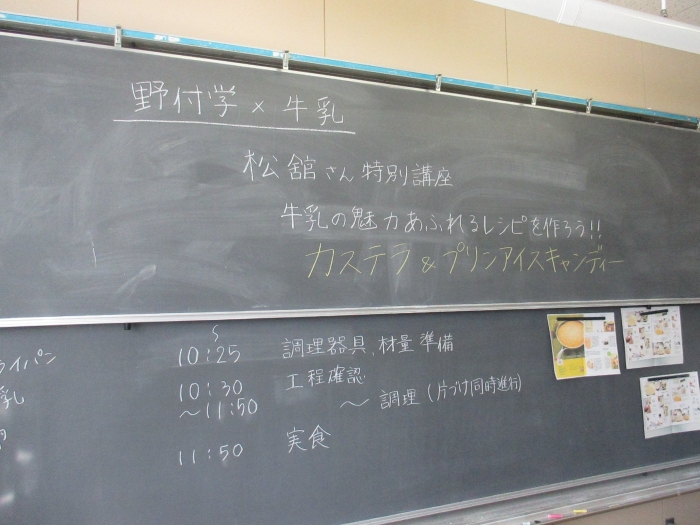 野付学×牛乳
松舘さん特別講座
牛乳の魅力あふれるレシピを作ろう!!
カステラ&プリンアイスキャンディー
ライパン
〜10:25 調理器具、材量準備
乳
10:30 工程確認
〜11:50 〜調理(片づけ同時進行)
11:50 実食